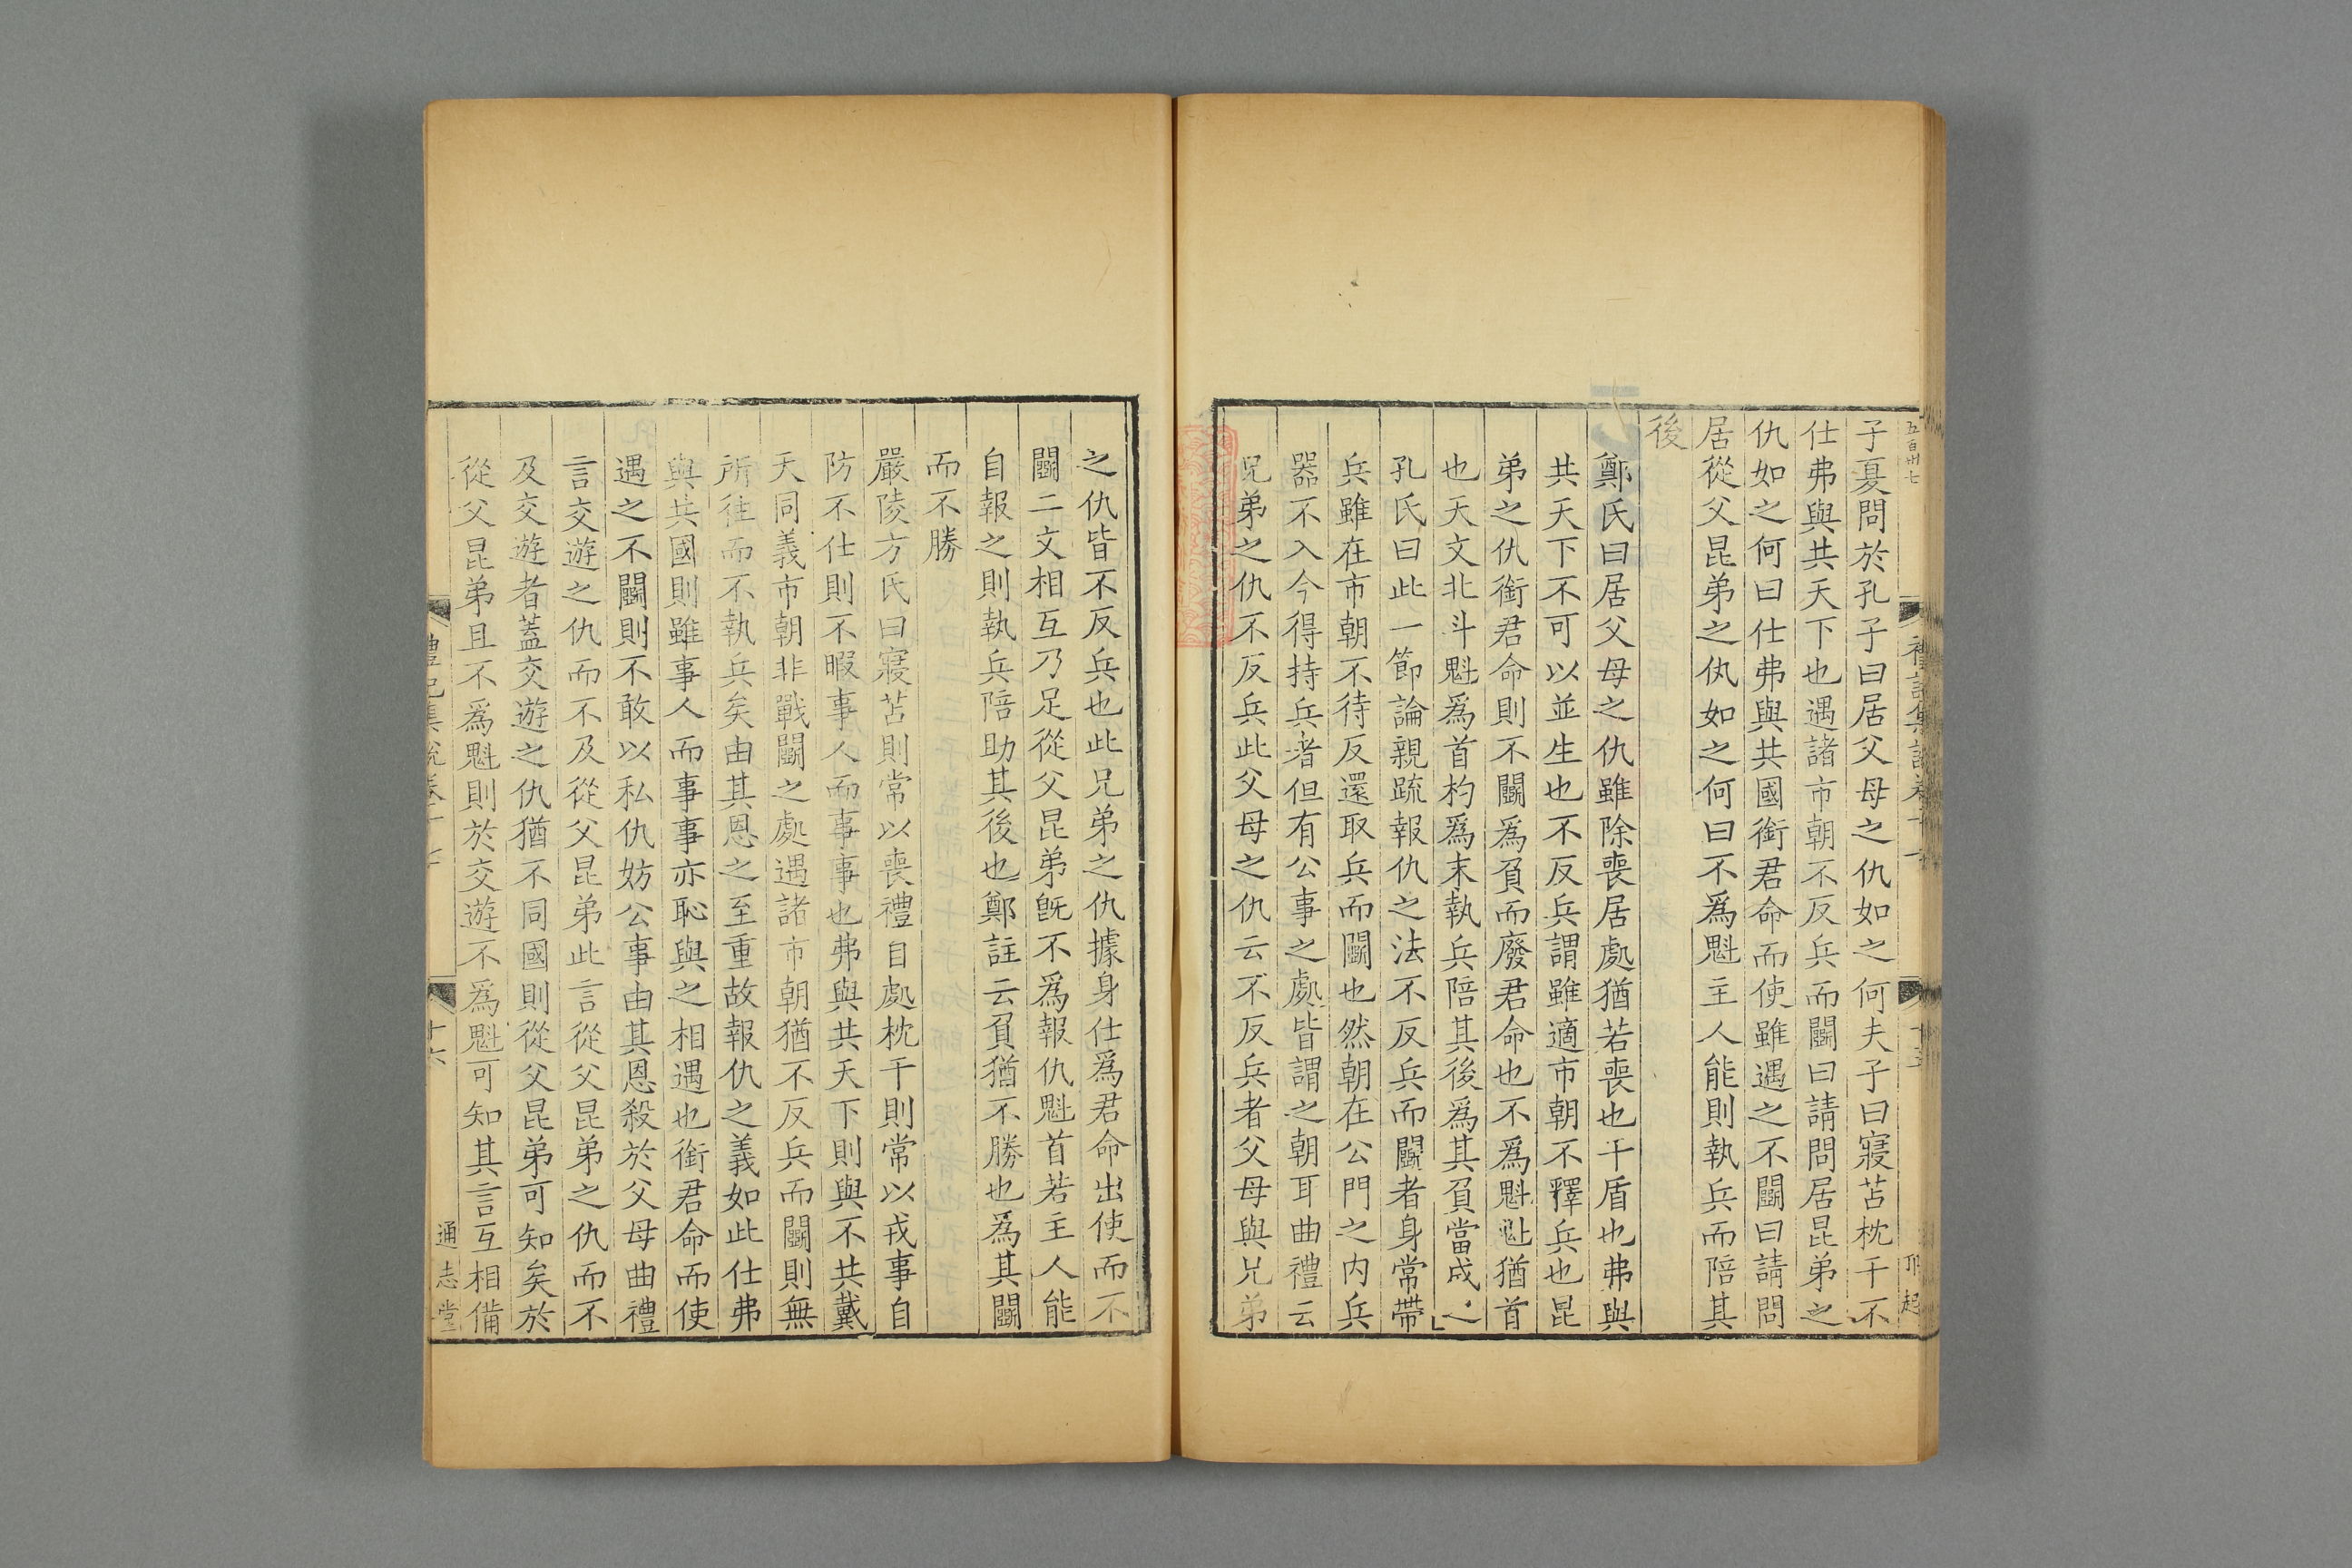 子夏問於孔子曰居父母之仇如之何夫子曰寢苫枕干不
仕弗與共天下也遇諸市朝不反兵而鬬曰請問居昆弟之
仇如之何曰仕弗與共國銜君命而使雖遇之不鬬曰請問
居從父昆弟之仇如之何曰不爲魁主人能則執兵而陪其
後
鄭氏曰居父母之仇雖除喪居處猶若喪也干盾也弗與
共天下不可以並生也不反兵謂雖適市朝不釋兵也昆
弟之仇銜君命則不鬬爲負而廢君命也不爲魁魁猶首
也天文北斗魁爲首杓爲末執兵陪其後爲其負當成之
孔氏曰此一節論親疏報仇之法不反兵而鬬者身常帶
兵雖在市朝不待反還取兵而鬬也然朝在公門之内兵
器不入今得持兵者但有公事之處皆謂之朝耳曲禮云
兄弟之仇不反兵此父母之仇云不反兵者父母與兄弟
之仇皆不反兵也此兄弟之仇據身仕爲君命出使而不
鬬二文相互乃足從父昆弟旣不爲報仇魁首若主人能
自報之則執兵陪助其後也鄭註云負猶不勝也爲其鬬
而不勝
嚴陵方氏曰寢苫則常以喪禮自處枕干則常以戎事自
防不仕則不暇事人而事事也弗與共天下則與不共戴
天同義市朝非戰鬬之處遇諸市朝猶不反兵而鬬則無
所往而不執兵矣由其恩之至重故報仇之義如此仕弗
與共國則雖事人而事事亦恥與之相遇也銜君命而使
遇之不鬬則不敢以私仇妨公事由其恩殺於父母曲禮
言交遊之仇而不及從父昆弟此言從父昆弟之仇而不
及交遊者蓋交遊之仇猶不同國則從父昆弟可知矣於
從父昆弟且不爲魁則於交遊不爲魁可知其言互相備
禮記集說卷十七
十六
通志堂